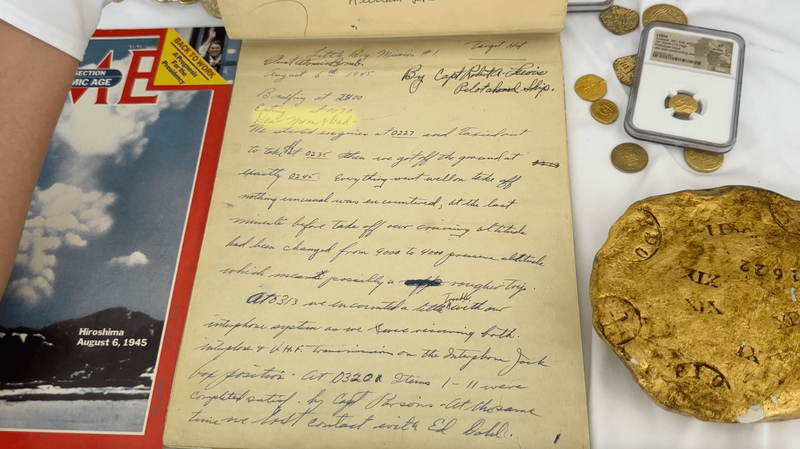 BACK TO WORK
A Prognosis
For the
Presidency
SECTION
MIC AGE
ME
Hiroshima
August 6, 1945
Little Boy Mission #1
Target
August 6th 1945
By Capt Robert Lewis
Pilot aboard Ship.
Briefing at 2400
Dear Mom & Dad-
We started engines at 0227 and taxied out
to take off 0235 then we got off the ground at
exactly 0245. Everything went well on take off
nothing unusual was encountered, at the last
minute before take off our cruising altitude
had been changed from 9000 to 4000 pressure altitude
which meant possibly a rougher trip.
At 0313 we encounted a little trouble with our
interphone system as we were receiving both
interphone & V.H.F. Transmission on the Interphone Jack
box position. At 0320 Items 1-11 were
completed satisf. by Capt Parsons. At the same
time we lost contact with Ed
1
2622
XIX
XIX